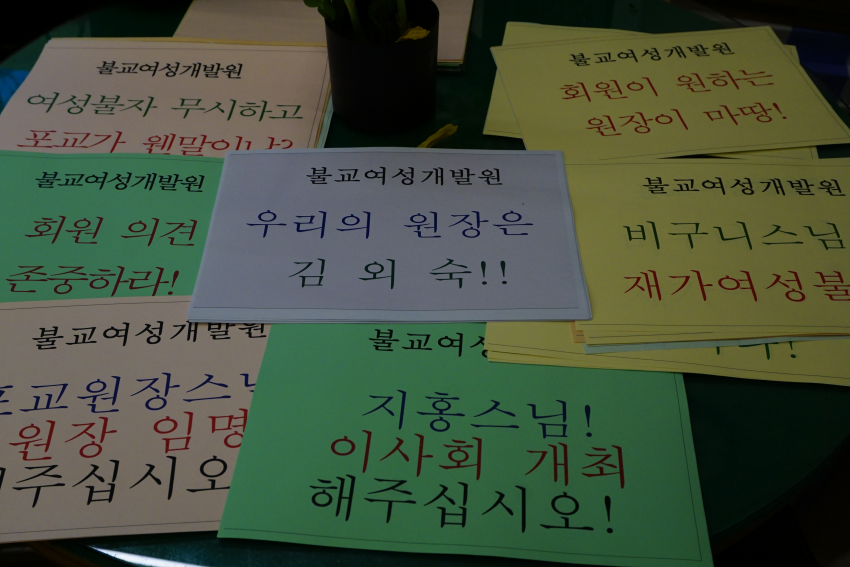 불교여성개발원
여성불자 무시하고
포교가 웬말이냐?
불교여성개발원
회원이 원하는
원장이 마땅!
불교여성개발원
회원 의견
존중하라!
불교여성개발원
우리의 원장은
김 외 숙!!
불교여성개발원
비구니스님
재가여성불
불교여성개발원
포교원장스님
원장 임명
해주십시오
불교여성
지홍스님!
이사회 개최
해주십시오!